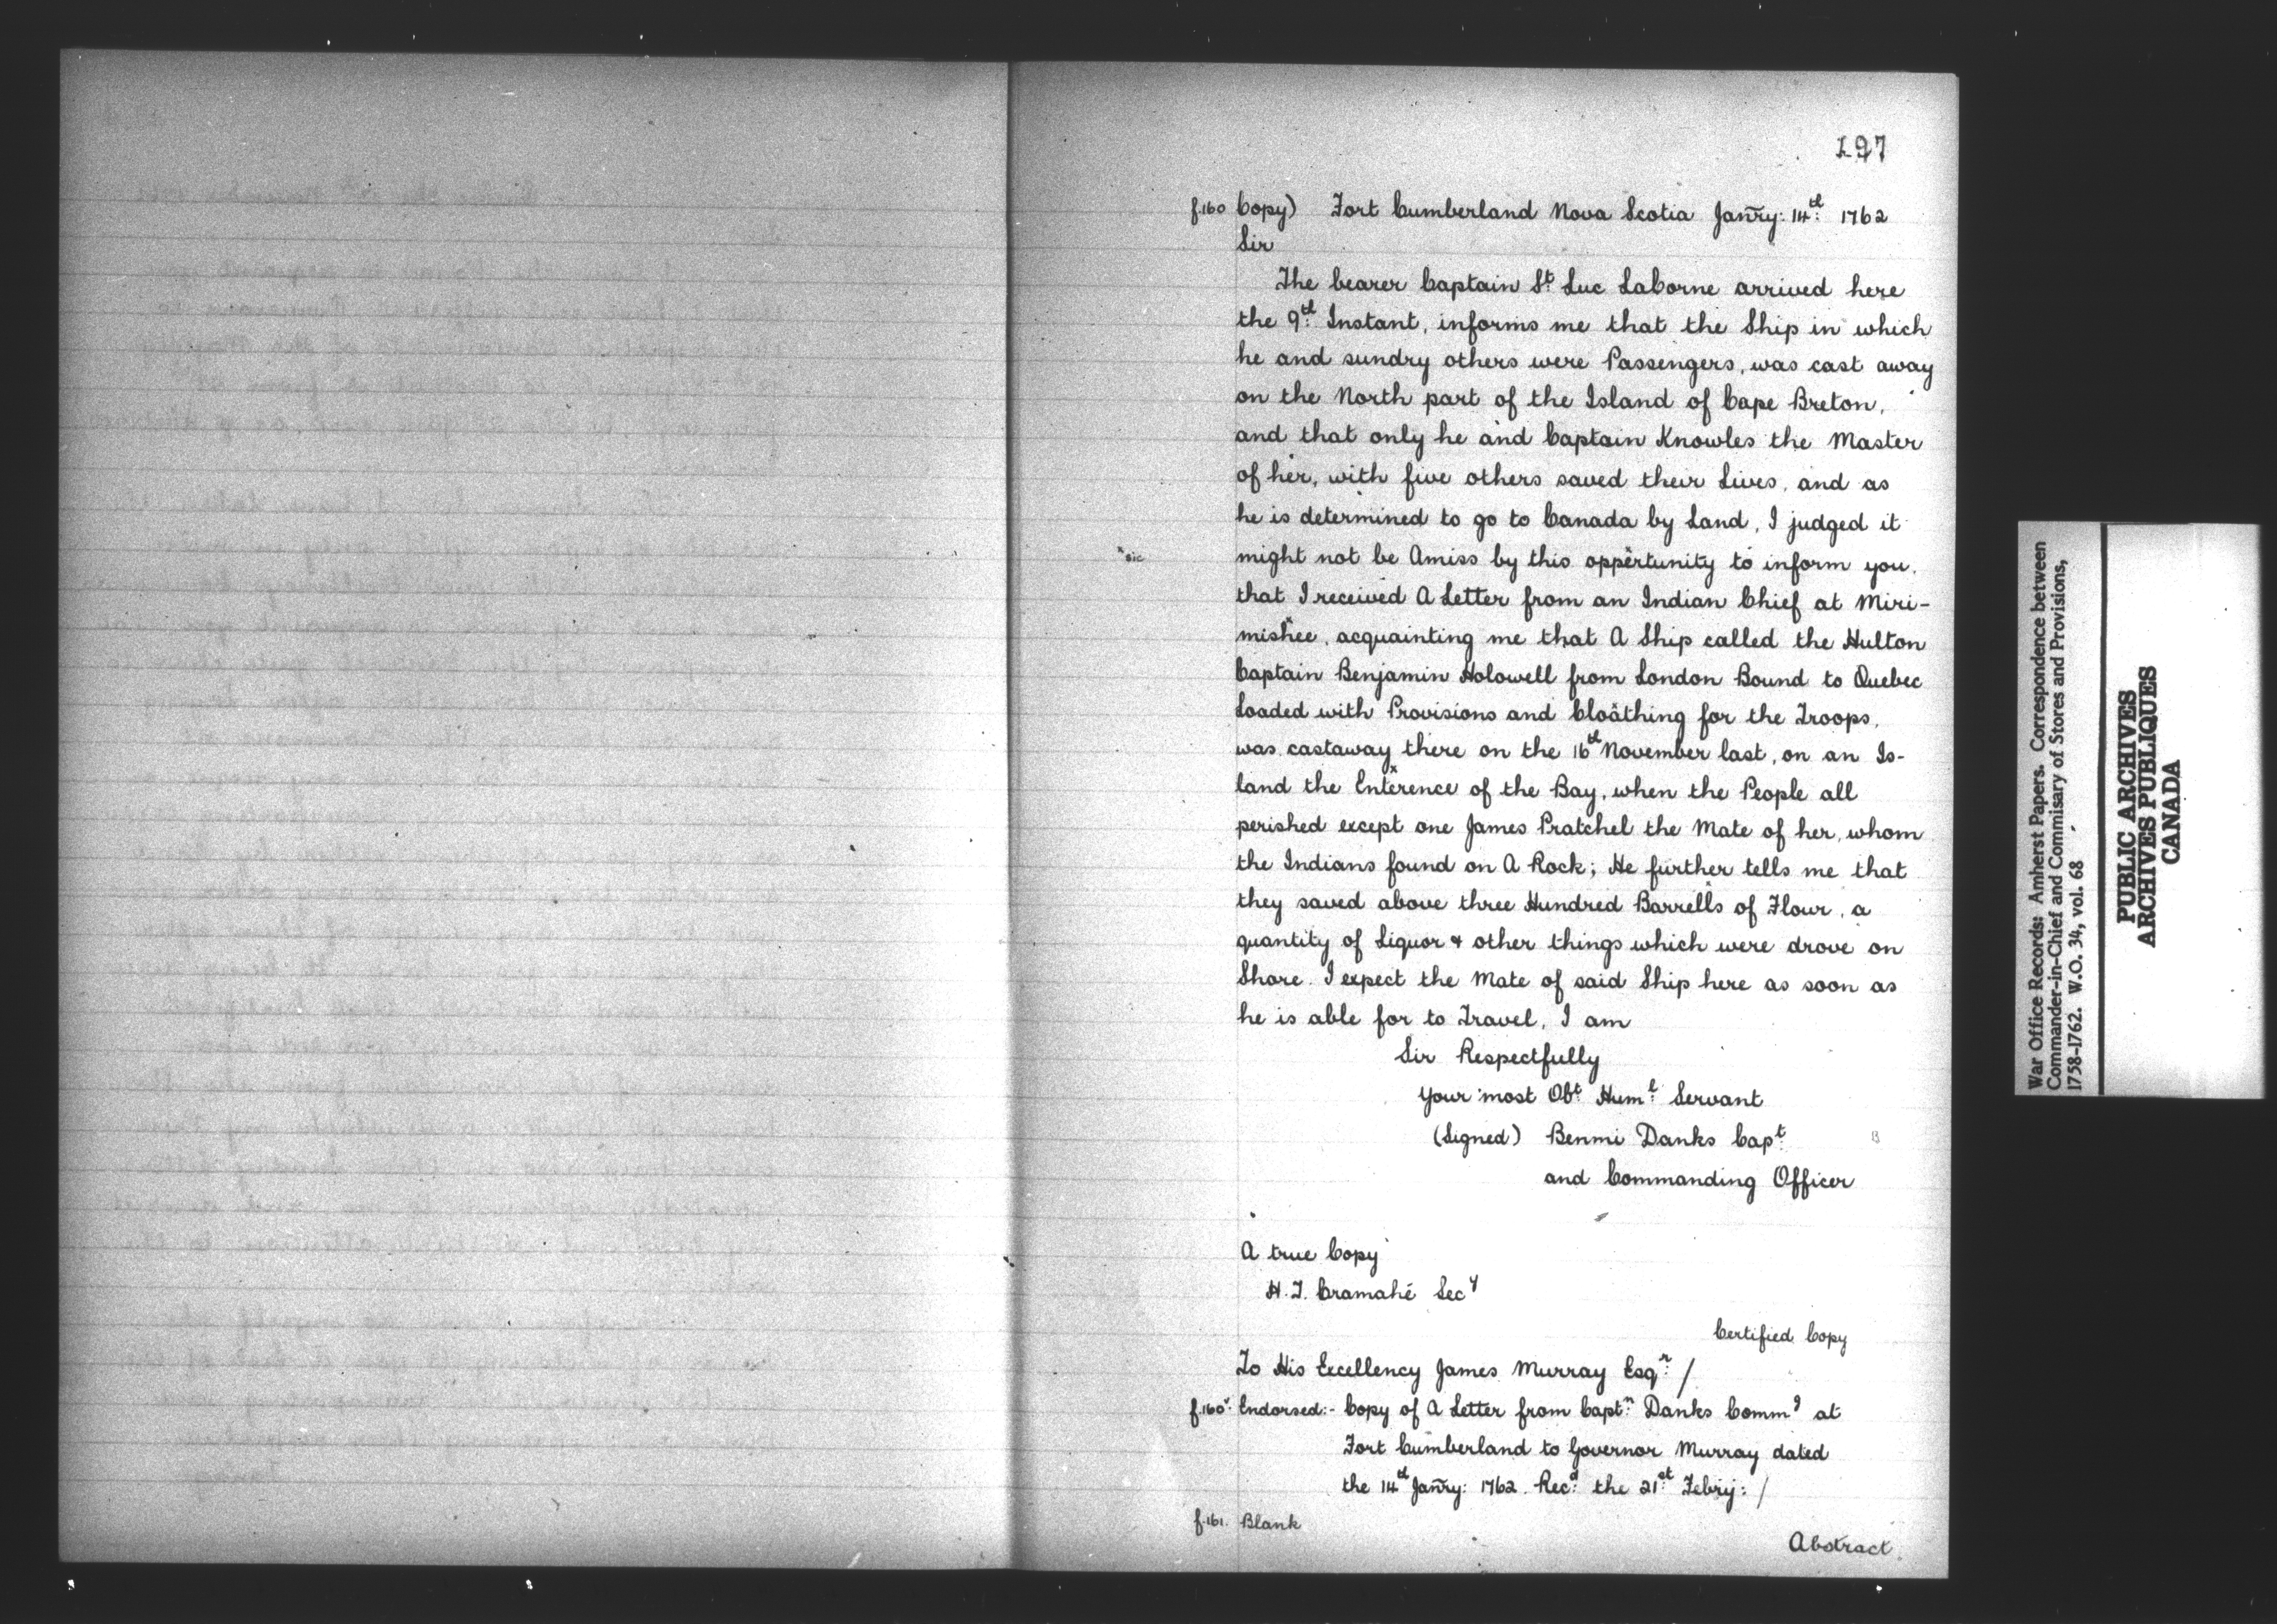 197
f.160 Copy) Fort Cumberland Nova Scotia Janry: 14th 1762
Sir
The bearer Captain St Luc LaCorne arrived here
the 9th Instant, informs me that the Ship in which
he and sundry others were Passengers, was cast away
on the North part of the Island of Cape Breton,
and that only he and Captain Knowles the Master
of her, with five others saved their Lives, and as
he is determined to go to Canada by Land, I judged it
*sic might not be Amiss by this oppertunity to inform you,
that I received A Letter from an Indian Chief at Miri-
mishee, acquainting me that A Ship called the Hulton
Captain Benjamin Holowell from London Bound to Quebec
Loaded with Provisions and Cloathing for the Troops,
was castaway there on the 16th November last, on an Is-
land the Enterence of the Bay, when the People all
perished except one James Pratchel the Mate of her, whom
the Indians found on A Rock; He further tells me that
they saved above three Hundred Barrells of Flour, a
quantity of Liquor & other things which were drove on
Shore. I expect the Mate of said Ship here as soon as
he is able for to Travel, I am
Sir Respectfully
Your most Obt Huml Servant
(Signed) Benmi Danks Capt
and Commanding Officer
A true Copy
H.T. Cramahé Secy
Certified Copy
To His Excellency James Murray Esqr /
f.160v. Endorsed:- Copy of A Letter from Captn Danks Commg at
Fort Cumberland to Governor Murray dated
the 14th Janry: 1762. Recd the 21st Febry: /
f.161. Blank
Abstract
War Office Records: Amherst Papers. Correspondence between
Commander-in-Chief and Commisary of Stores and Provisions,
1758-1762. W.O. 34, vol. 68
PUBLIC ARCHIVES
ARCHIVES PUBLIQUES
CANADA